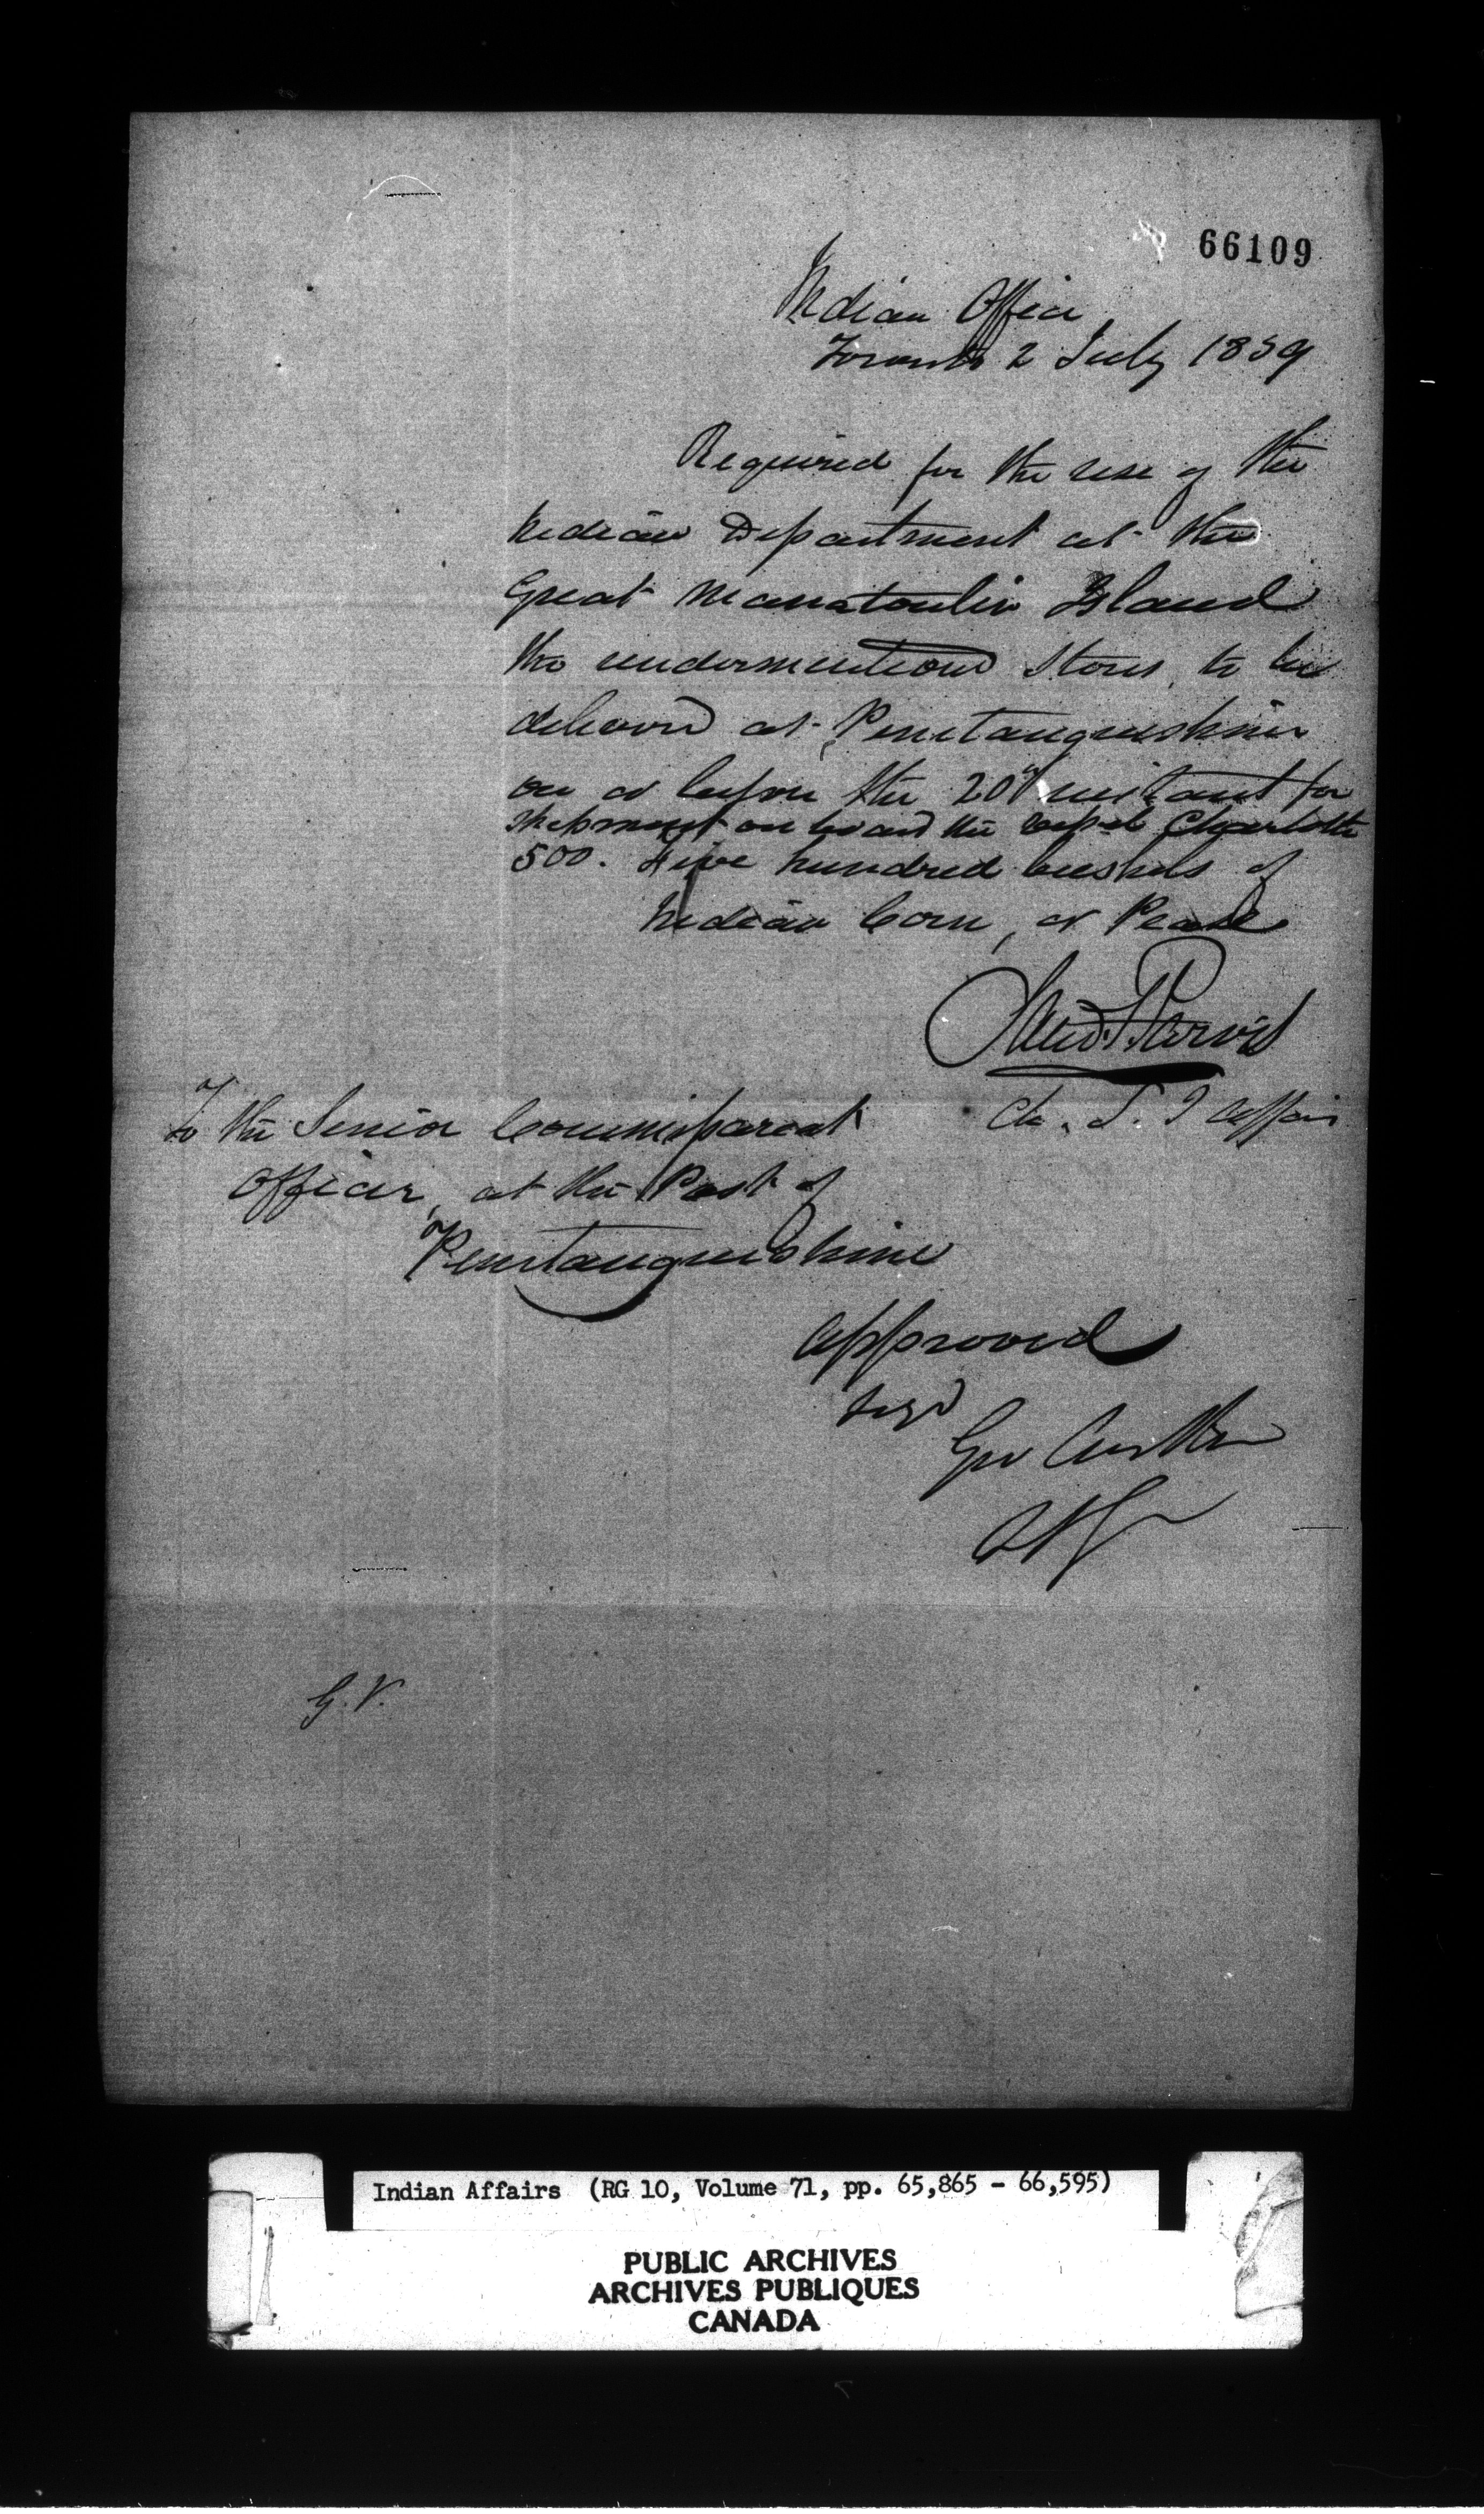 66109
Indian Office
Toronto 2 July 1839
Required for the use of the
Indian Department at the
Great Manatoulin Island
the undermentiond Stores, to be
deliverd at Penetanguishine
on or before the 20th instant for
shipment on board the vessel Charlotte
500. Five hundred bushels of
Indian Corn, or Pease
Saml P Jarvis
Ch. S. I Affairs
To the Senior Commissariat
Officer, at the Post of
Penetanguishine
Approved
sigd
Geo Arthur
G.V.
Indian Affairs (RG 10, Volume 71, pp. 65,865 - 66,595)
PUBLIC ARCHIVES
ARCHIVES PUBLIQUES
CANADA